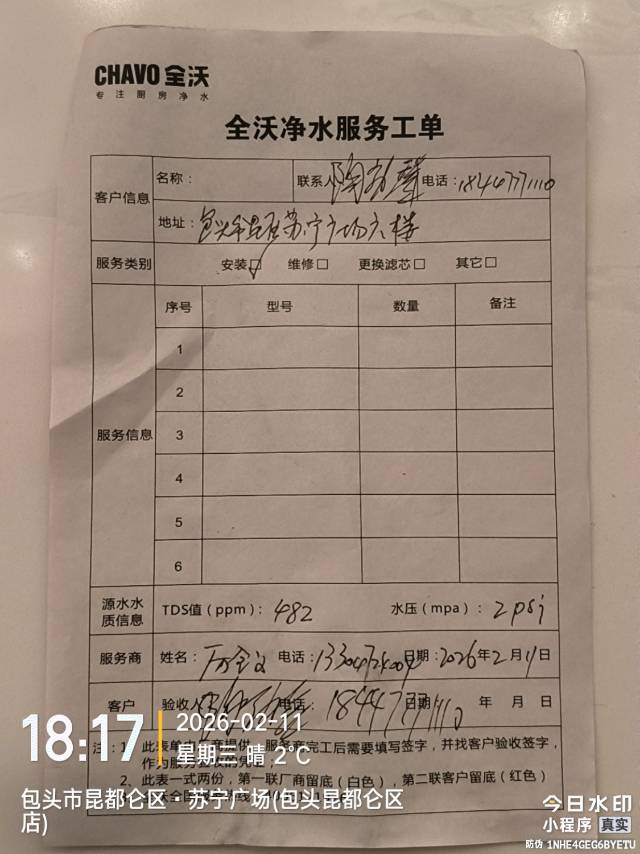 CHAVO 全沃
专注厨房净水
全沃净水服务工单
客户信息
名称：
联系人 电话：18447771110
地址： 苏宁广场六楼
服务类别
安装☑ 维修□ 更换滤芯□ 其它□
服务信息
序号 型号 数量 备注
1
2
3
4
5
6
源水水质信息
TDS值（ppm）：482 水压（mpa）：2psi
服务商
姓名： 电话： 日期：2026年2月11日
客户
验收人 电话：18447771110 日期： 年 月 日
注：1、此表单 商提供，服务 完工后需要填写签字，并找客户验收签字，
作为服务
2、此表一式两份，第一联厂商留底（白色），第二联客户留底（红色）
18:17
2026-02-11
星期三 晴 2℃
包头市昆都仑区·苏宁广场(包头昆都仑区
店)
今日水印
小程序 真实
防伪 1NHE4GEG6BYETU